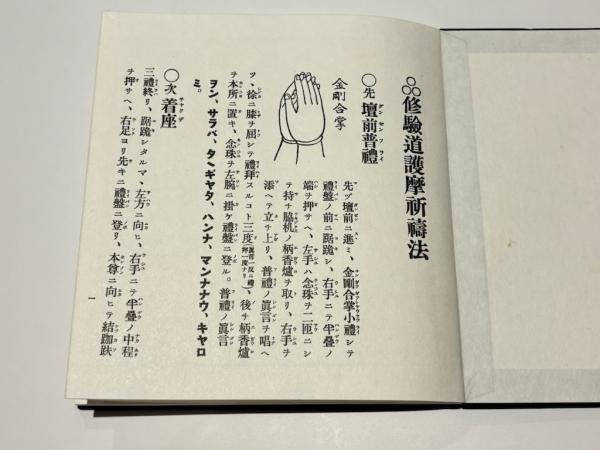 修驗道護摩祈禱法
○先 壇前普禮
金剛合掌
先ヅ壇前ニ進ミ、金剛合掌小禮シテ
禮盤ノ前ニ踞跪シ、右手ニテ半疊ノ
端ヲ押サヘ、左手ハ念珠ヲ二匝ニシ
テ持チ脇机ノ柄香爐ヲ取リ、右手ヲ
添ヘテ立チ上リ、普禮ノ眞言ヲ唱ヘ
ツ、徐ニ膝ヲ屈シテ禮拜スルコト三度、後チ柄香爐
ヲ本所ニ置キ、念珠ヲ左腕ニ掛ケ禮盤ニ登ル。普禮ノ眞言
ヲン、サラバ、タヽギヤタ、ハンナ、マンナナウ、キヤロ
ミ。
○次 着座
三禮終リ、踞跪シタルマヽ左方ニ向ヒ、右手ニテ半疊ノ中程
ヲ押サヘ、右足ヨリ先キニ禮盤ニ登リ、本尊ニ向ヒテ結跏趺
一